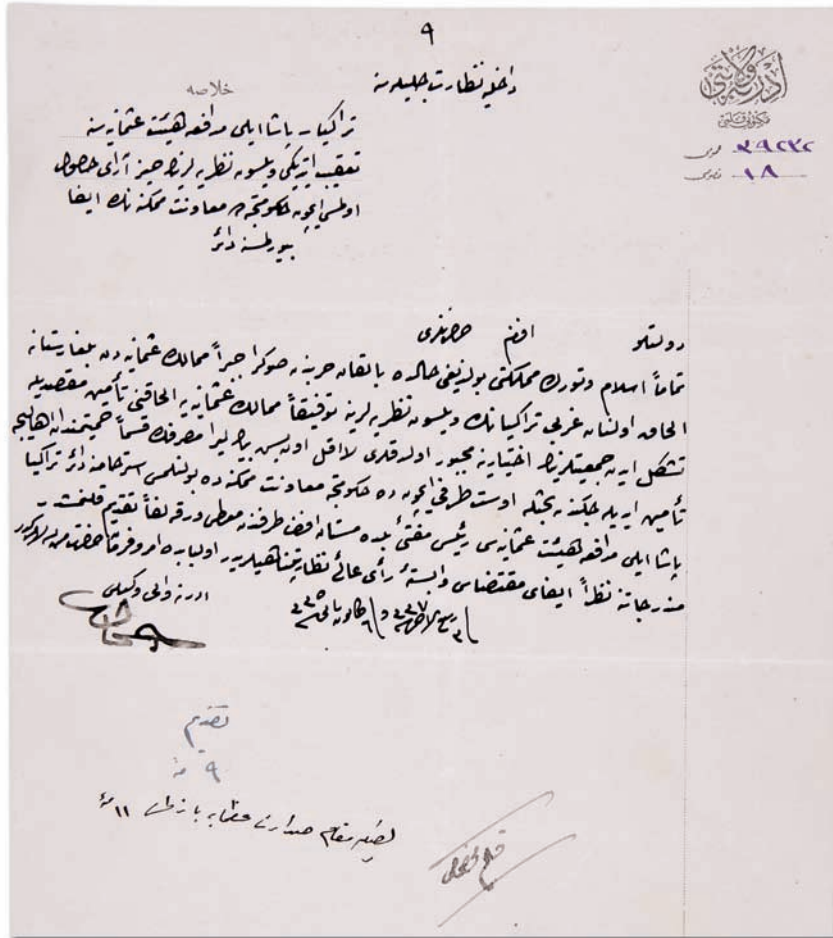 ٩
ادرنه ولايتی
مكتوبی قلمی
عمومی ٣٩٢٧٢
خصوصی ١٨
داخليه نظارت جليله‌سنه
خلاصه
تراكيا پاشا ايلی مدافعه هيئت عثمانيه‌سنه
تعقيب ايتديكی ويلسون نظريه‌لرينك حيز آرای حصول
اولمسی ايچون حكومتجه معاونت ممكنه‌نك ايفا
بيورلمسنه دائر
دولتلو افندم حضرتلری
تماماً اسلام وتورك مملكتی بولنديغی حالده بالقان حربندن صوكرا جبراً ممالك عثمانيه‌دن بلغارستانه
الحاق اولنان غربی تراكيانك ويلسون نظريه‌لرينه توفيقاً ممالك عثمانيه‌يه الحاقنی تأمين مقصديله
تشكل ايدن جمعيتلرينك اختيارينه مجبور اولدقلری لااقل اون بش بيك ليرا مصرفك قسماً حميتمندان اهاليجه
تأمين ايديله‌جكندن بحثله اوست طرفی ايچون ده حكومتجه معاونت ممكنه‌ده بولنلمسی استرحامنه دائر تراكيا
پاشا ايلی مدافعه هيئت عثمانيه‌سی رئيسی مفتئ بلده مستان افندی طرفندن معطی ورقه لفاً تقديم قلنمشدر
مندرجاتنه نظراً ايفای مقتضاسی وابستۀ رأی عالئ نظارتپناهيلريدر اولبابده امر وفرمان حضرت من له الامركدر
فی ٣ ربيع الآخر ٣٣٧ وفی ٦ كانون ثانی ٣٣٥
ادرنه والی وكيلی
تقديم
٩ منه
مقام صدارت عظمايه يازلدی ١١ منه